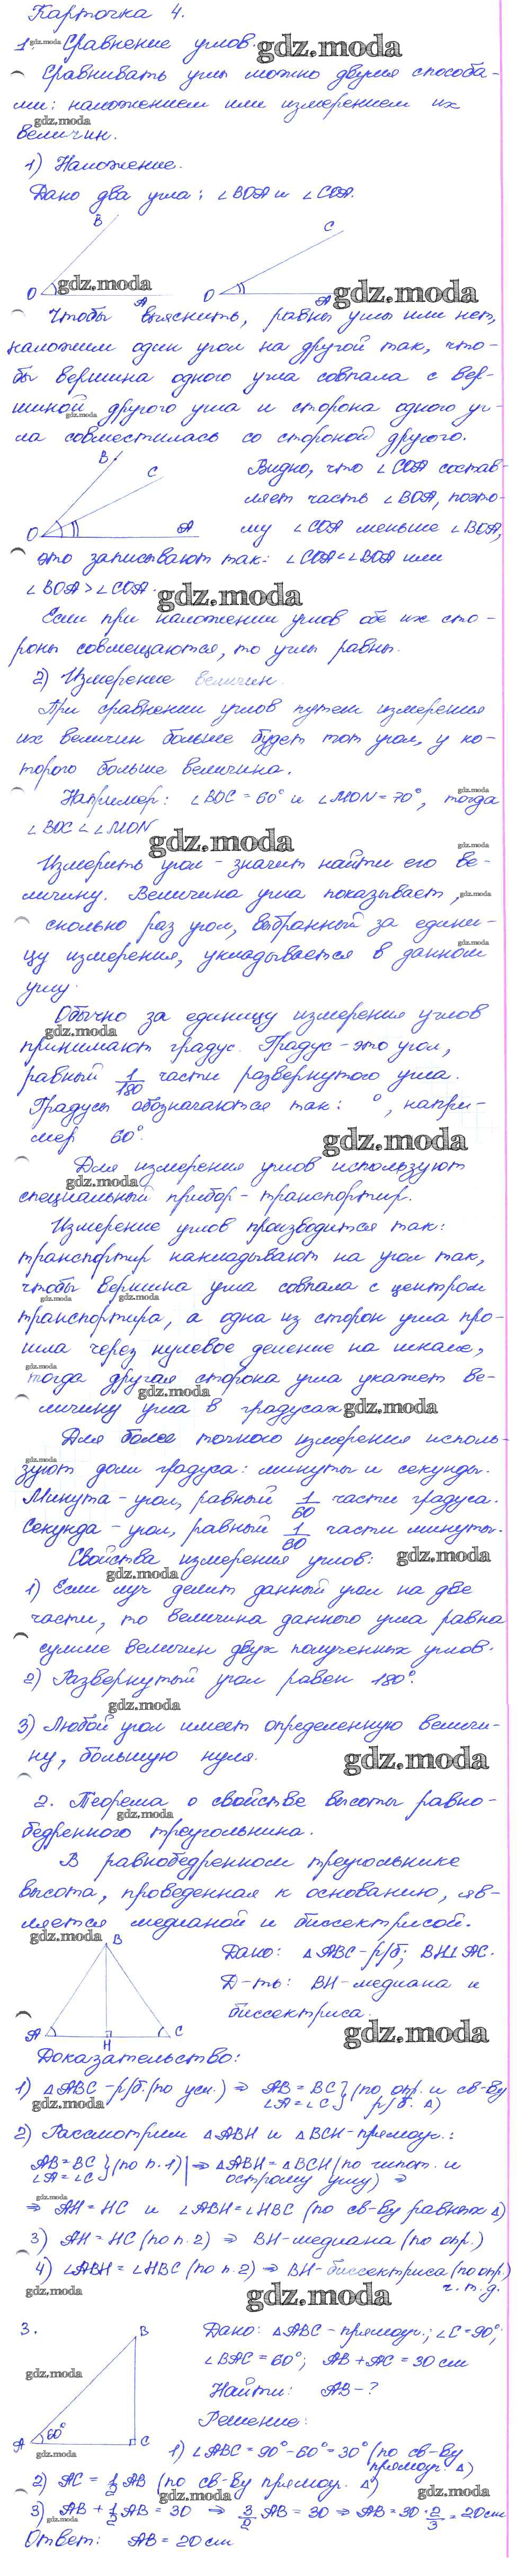 Карточка 4.
1. Сравнение углов.
gdz.moda
gdz.moda
Сравнивать углы можно двумя способа-
ми: наложением или измерением их
gdz.moda
величин.
1) Наложение.
Дано два угла: ∠BOA и ∠COA.
B
C
O
gdz.moda
A
O
A
gdz.moda
Чтобы выяснить, равны углы или нет,
наложим один угол на другой так, что-
бы вершина одного угла совпала с вер-
шиной другого угла и сторона одного уг-
gdz.moda
ла совместилась со стороной другого.
B
C
O
A
Видно, что ∠COA состав-
ляет часть ∠BOA, поэто-
му ∠COA меньше ∠BOA,
это записывают так: ∠COA<∠BOA или
∠BOA>∠COA.
gdz.moda
Если при наложении углов обе их сто-
роны совмещаются, то углы равны.
2) Измерение величин.
При сравнении углов путем измерения
их величин больше будет тот угол, у ко-
торого больше величина.
gdz.moda
Например: ∠BOC = 60° и ∠MON = 70°, тогда
∠BOC < ∠MON
gdz.moda
gdz.moda
Измерить угол - значит найти его ве-
личину. Величина угла показывает,
gdz.moda
сколько раз угол, выбранный за едини-
цу измерения, укладывается в данном
gdz.moda
углу.
Обычно за единицу измерения углов
gdz.moda
принимают градус. Градус - это угол,
равный 1/180 части развернутого угла.
Градусы обозначаются так: °, напри-
мер 60°.
gdz.moda
Для измерения углов используют
gdz.moda
специальный прибор - транспортир.
Измерение углов производится так:
транспортир накладывают на угол так,
чтобы вершина угла совпала с центром
gdz.moda
gdz.moda
транспортира, а одна из сторон угла про-
шла через нулевое деление на шкале,
gdz.moda
тогда другая сторона угла укажет ве-
gdz.moda
личину угла в градусах
gdz.moda
Для более точного измерения исполь-
gdz.moda
зуют доли градуса: минуты и секунды.
Минута - угол, равный 1/60 части градуса.
Секунда - угол, равный 1/60 части минуты.
Свойства измерения углов:
gdz.moda
gdz.moda
1) Если луч делит данный угол на две
части, то величина данного угла равна
сумме величин двух полученных углов.
2) Развернутый угол равен 180°.
gdz.moda
3) Любой угол имеет определенную величи-
ну, большую нуля.
gdz.moda
2. Теорема о свойстве высоты равно-
gdz.moda
бедренного треугольника.
В равнобедренном треугольнике
высота, проведенная к основанию, яв-
ляется медианой и биссектрисой.
gdz.moda
B
A
H
C
Дано: △ABC - р/б; BH⊥AC.
Д-ть: BH - медиана и
биссектриса.
gdz.moda
Доказательство:
1) △ABC - р/б (по усл.) ⇒ AB = BC} (по опр. и св-ву
gdz.moda
∠A = ∠C} р/б. △)
2) Рассмотрим △ABH и △BCH - прямоуг.:
AB = BC} (по п. 1) | ⇒ △ABH = △BCH (по гипот. и
∠A = ∠C} острому углу) ⇒
gdz.moda
⇒ AH = HC и ∠ABH = ∠HBC (по св-ву равных △)
3) AH = HC (по п. 2) ⇒ BH - медиана (по опр.)
4) ∠ABH = ∠HBC (по п. 2) ⇒ BH - биссектриса (по опр.)
gdz.moda
gdz.moda
ч. т. д.
3.
B
gdz.moda
A
60°
C
gdz.moda
Дано: △ABC - прямоуг.; ∠C = 90°;
∠BAC = 60°; AB + AC = 30 см
Найти: AB - ?
Решение:
1) ∠ABC = 90° - 60° = 30° (по св-ву
прямоуг. △)
2) AC = 1/2 AB (по св-ву прямоуг. △)
gdz.moda
gdz.moda
3) AB + 1/2 AB = 30 ⇒ 3/2 AB = 30 ⇒ AB = 30 · 2/3 = 20 см
Ответ: AB = 20 см